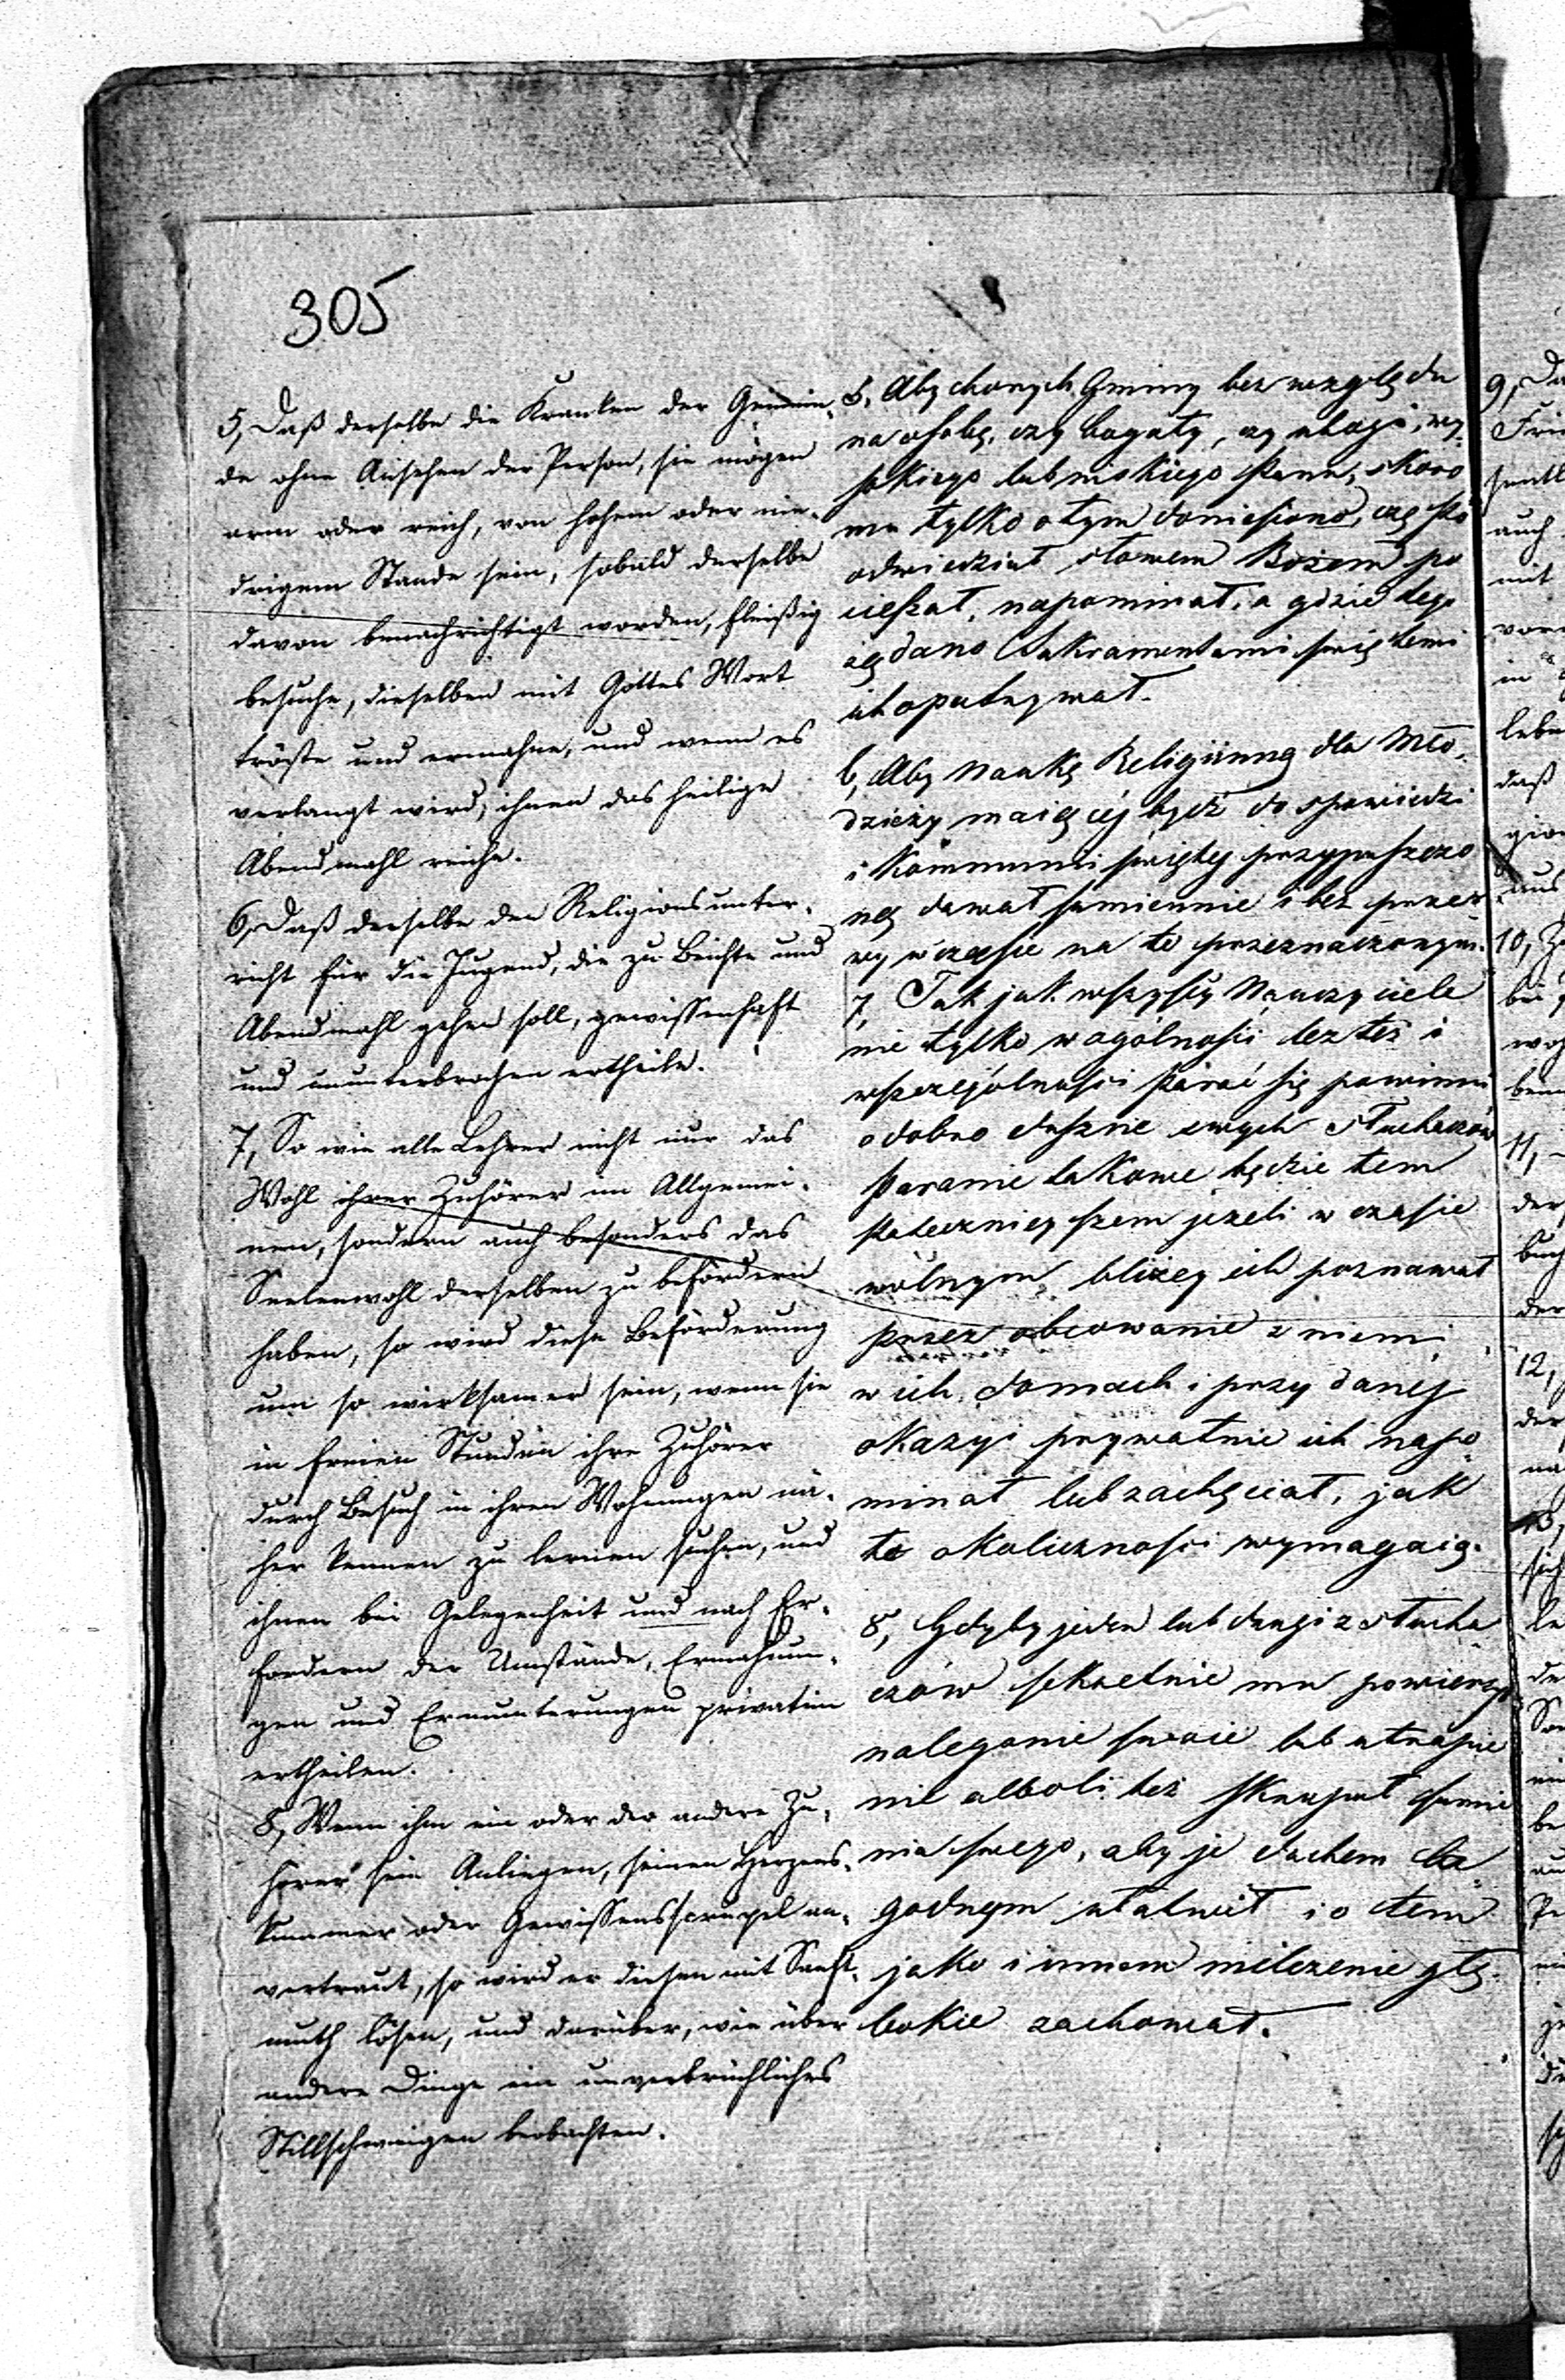 305
5, Daß derselbe die Kranken der Gemein-
de ohne Ansehen der Person, sie mögen
arm oder reich, von hohem oder nie-
drigem Stande sein, sobald derselbe
davon benachrichtigt worden, fleißig
besuche, dieselben mit Gottes Wort
tröste und ermahne, und wenn es
verlangt wird, ihnen das heilige
Abendmahl reiche.
6, Daß derselbe den Religionsunter-
richt für die Jugend, die zu Beichte und
Abendmahl gehen soll, gewissenhaft
und ununterbrochen ertheile.
7, So wie alle Lehrer nicht nur das
Wohl ihrer Zuhörer im Allgemei-
nen, sondern auch besonders das
Seelenwohl derselben zu befördern
haben, so wird diese Beförderung
um so wirksamer sein, wenn sie
in freien Stunden ihre Zuhörer
durch Besuch in ihren Wohnungen nä-
her kennen zu lernen suchen, und
ihnen bei Gelegenheit und nach Er-
fordern der Umstände, Ermahnun-
gen und Ermunterungen privatim
ertheilen.
8, Wenn ihm ein oder der andere Zu-
hörer sein Anliegen, seinen Herzens-
kummer oder Gewissensscrupel an-
vertraut, so wird er diesen mit Sanft-
muth lösen, und darüber, wie über
andere Dinge ein unverbrüchliches
Stillschweigen beobachten.
5, Aby chorych Gminy bez względu
na osobę, czy bogaty, czy ubogi, wy-
sokiego lub niskiego stanu, skoro
mu tylko o tym doniesiono, często
odwiedzał słowem Bożem po
cieszał, napominał, a gdzie tego
żądano Sakramentami świętemi
ich opatrywał.
6, Aby naukę Religiinną dla Mło-
dzieży maiącéj bydź do spowiedzi
i Kommunii świętej przypuszczo
ną dawał sumiennie i bez przer
wy w czasie na to przeznaczonym.
7, Tak jak wszyscy Nauczyciele
nie tylko w ogólności lez też i
wszczególności starać się powinni
o dobro duszne swych słuchaczów
staranie takowe będzie tem
statecznieyszem jeżeli w czasie
wolnym, bliżey ich poznawał
przez obcowanie z niemi,
w ich domach i przy danej
okazyi prywatnie ich napo
minał lub zachęciał, jak
to okoliczności wymagaią.
8, Gdyby jeden lub drugi z słucha
czów sekretnie mu powierzył
naleganie swoie lub utrapie
nie alboli też skrupuł sumie
nia swego, aby je duchem ła
godnym ułatwił i o tem
jako i innem milczenie głę-
bokie zachował.